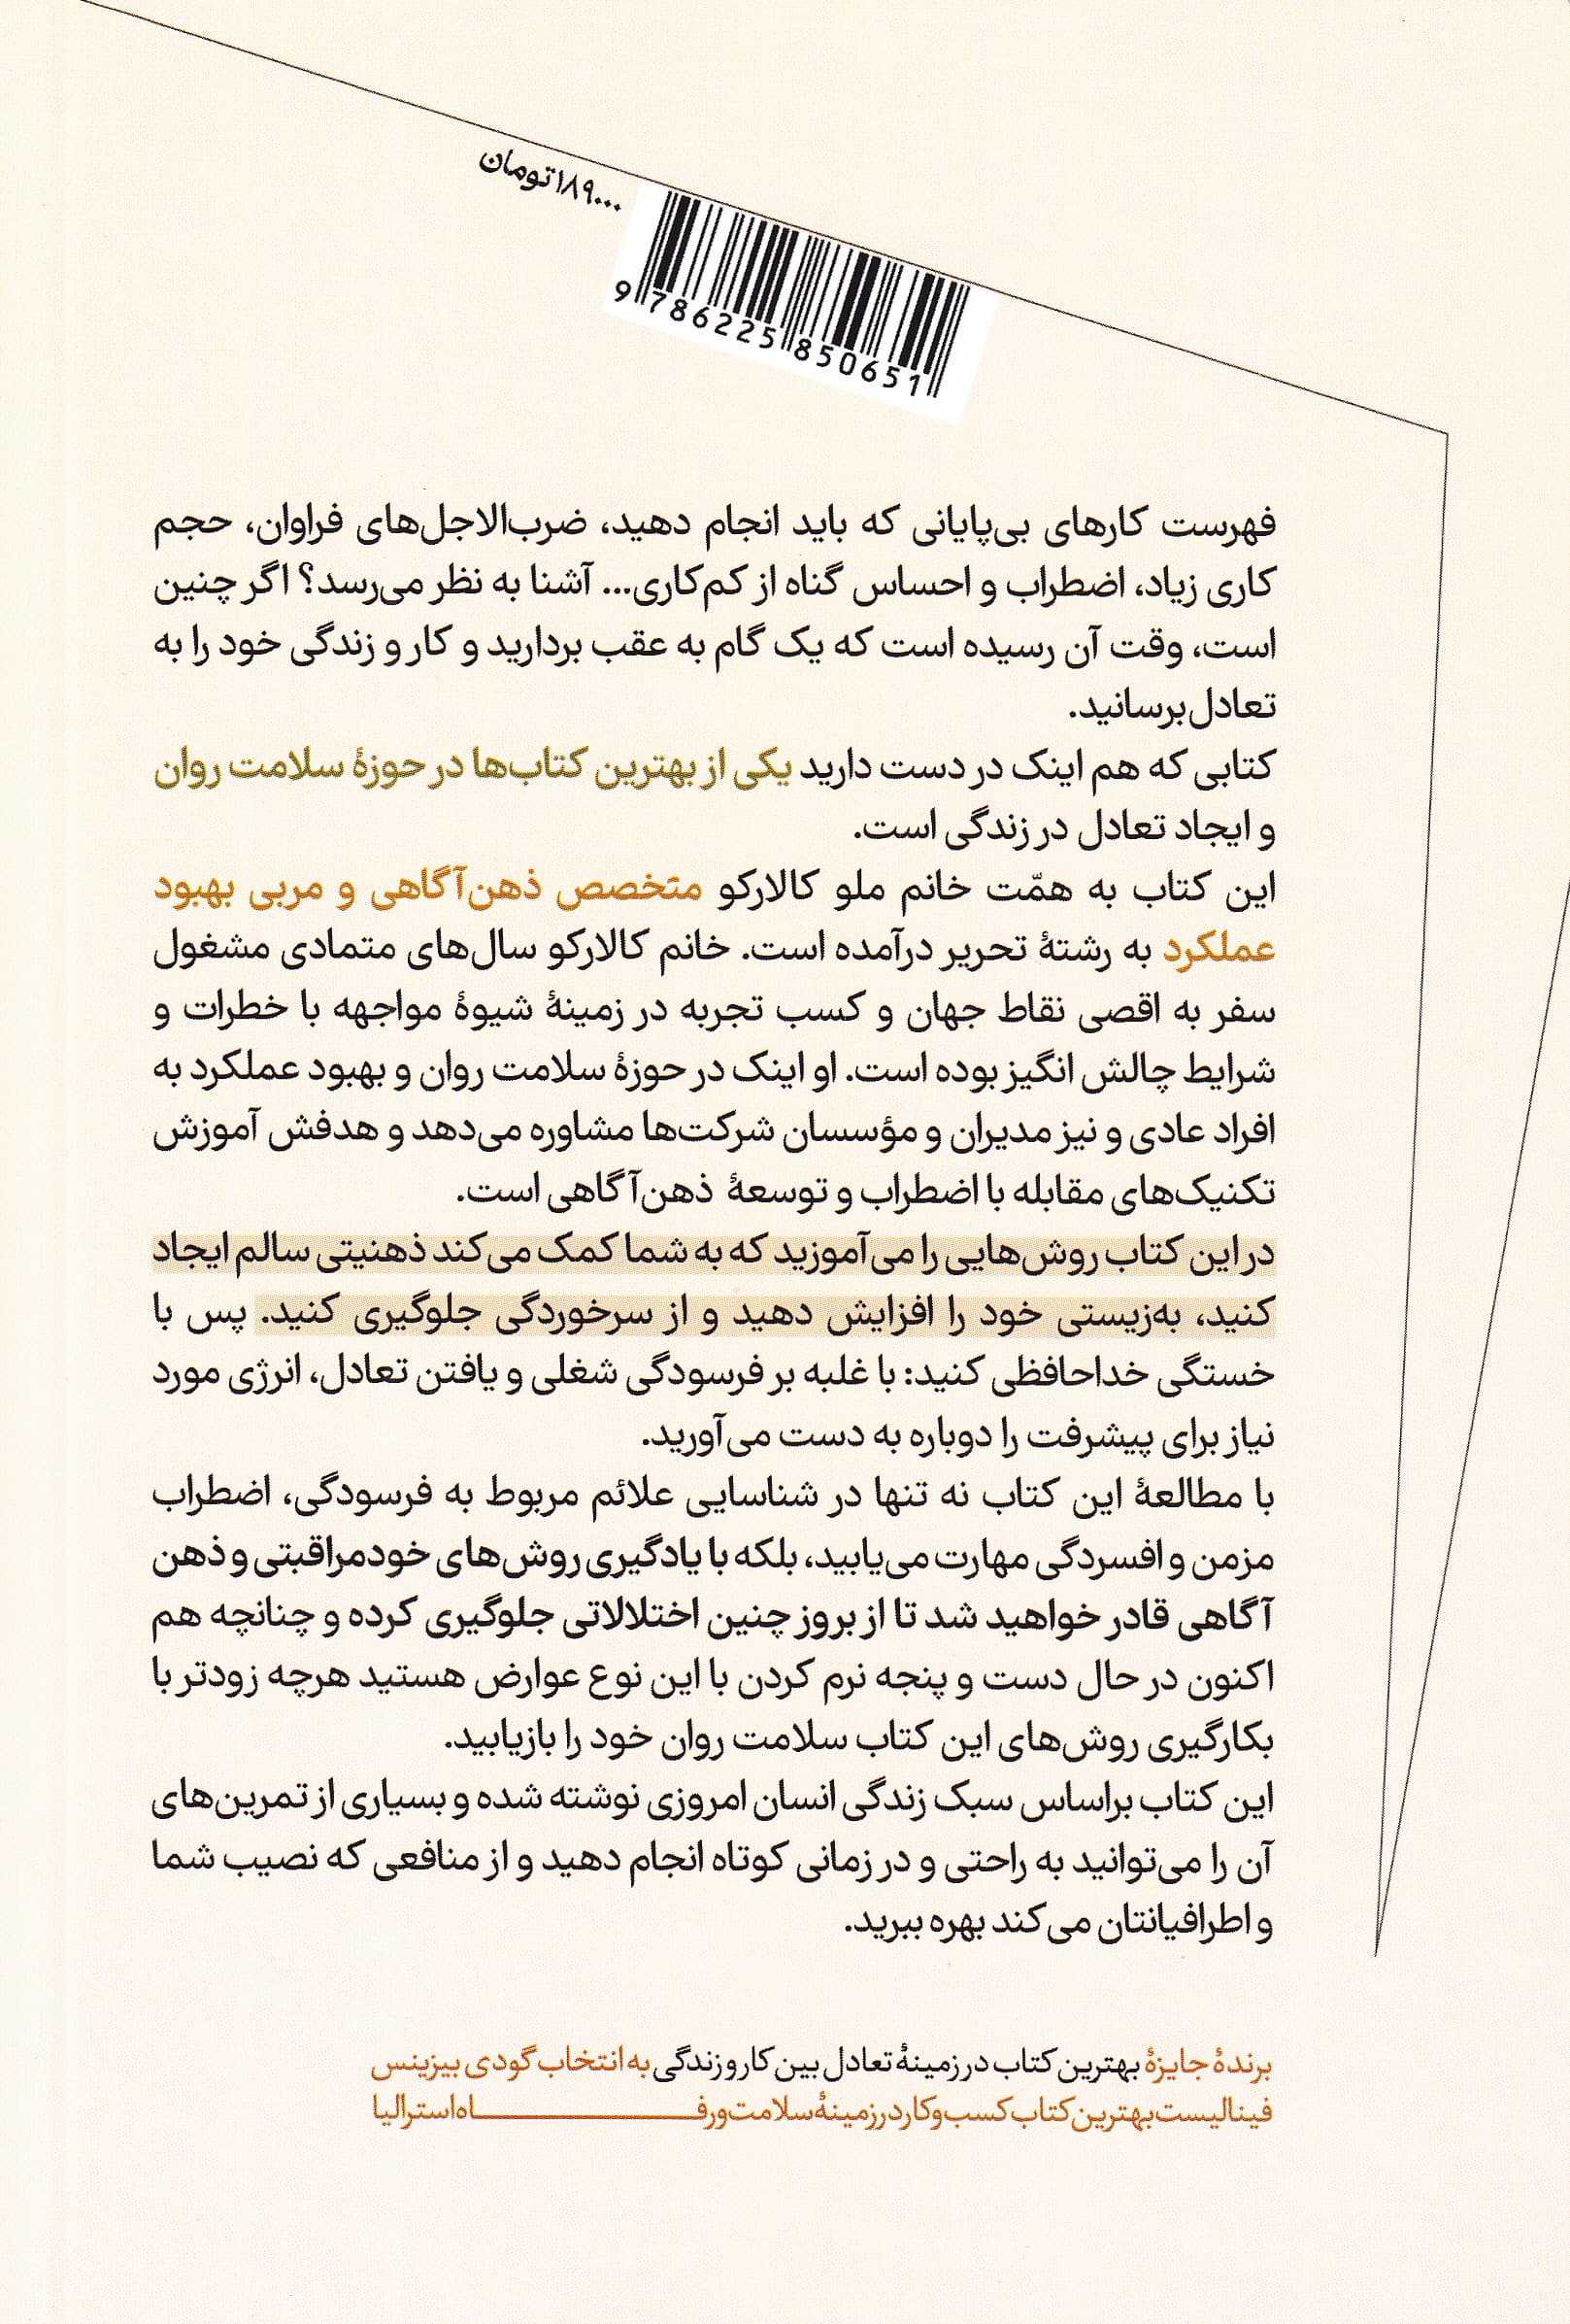 ۱۸۹۰۰۰تومان
9 786225 850651
فهرست کارهای بی‌پایانی که باید انجام دهید، ضرب‌الاجل‌های فراوان، حجم
کاری زیاد، اضطراب و احساس گناه از کم‌کاری... آشنا به نظر می‌رسد؟ اگر چنین
است، وقت آن رسیده است که یک گام به عقب بردارید و کار و زندگی خود را به
تعادل برسانید.
کتابی که هم اینک در دست دارید یکی از بهترین کتاب‌ها در حوزهٔ سلامت روان
و ایجاد تعادل در زندگی است.
این کتاب به همّت خانم ملو کالارکو متخصص ذهن‌آگاهی و مربی بهبود
عملکرد به رشتهٔ تحریر درآمده است. خانم کالارکو سال‌های متمادی مشغول
سفر به اقصی نقاط جهان و کسب تجربه در زمینهٔ شیوهٔ مواجهه با خطرات و
شرایط چالش انگیز بوده است. او اینک در حوزهٔ سلامت روان و بهبود عملکرد به
افراد عادی و نیز مدیران و مؤسسان شرکت‌ها مشاوره می‌دهد و هدفش آموزش
تکنیک‌های مقابله با اضطراب و توسعهٔ ذهن‌آگاهی است.
در این کتاب روش‌هایی را می‌آموزید که به شما کمک می‌کند ذهنیتی سالم ایجاد
کنید، به‌زیستی خود را افزایش دهید و از سرخوردگی جلوگیری کنید. پس با
خستگی خداحافظی کنید: با غلبه بر فرسودگی شغلی و یافتن تعادل، انرژی مورد
نیاز برای پیشرفت را دوباره به دست می‌آورید.
با مطالعهٔ این کتاب نه تنها در شناسایی علائم مربوط به فرسودگی، اضطراب
مزمن و افسردگی مهارت می‌یابید، بلکه با یادگیری روش‌های خودمراقبتی و ذهن
آگاهی قادر خواهید شد تا از بروز چنین اختلالاتی جلوگیری کرده و چنانچه هم
اکنون در حال دست و پنجه نرم کردن با این نوع عوارض هستید هرچه زودتر با
بکارگیری روش‌های این کتاب سلامت روان خود را بازیابید.
این کتاب براساس سبک زندگی انسان امروزی نوشته شده و بسیاری از تمرین‌های
آن را می‌توانید به راحتی و در زمانی کوتاه انجام دهید و از منافعی که نصیب شما
و اطرافیانتان می‌کند بهره ببرید.
برندهٔ جایزهٔ بهترین کتاب در زمینهٔ تعادل بین کار و زندگی به انتخاب گودی بیزینس
فینالیست بهترین کتاب کسب‌وکار در زمینهٔ سلامت و رفـــــــاه استرالیا